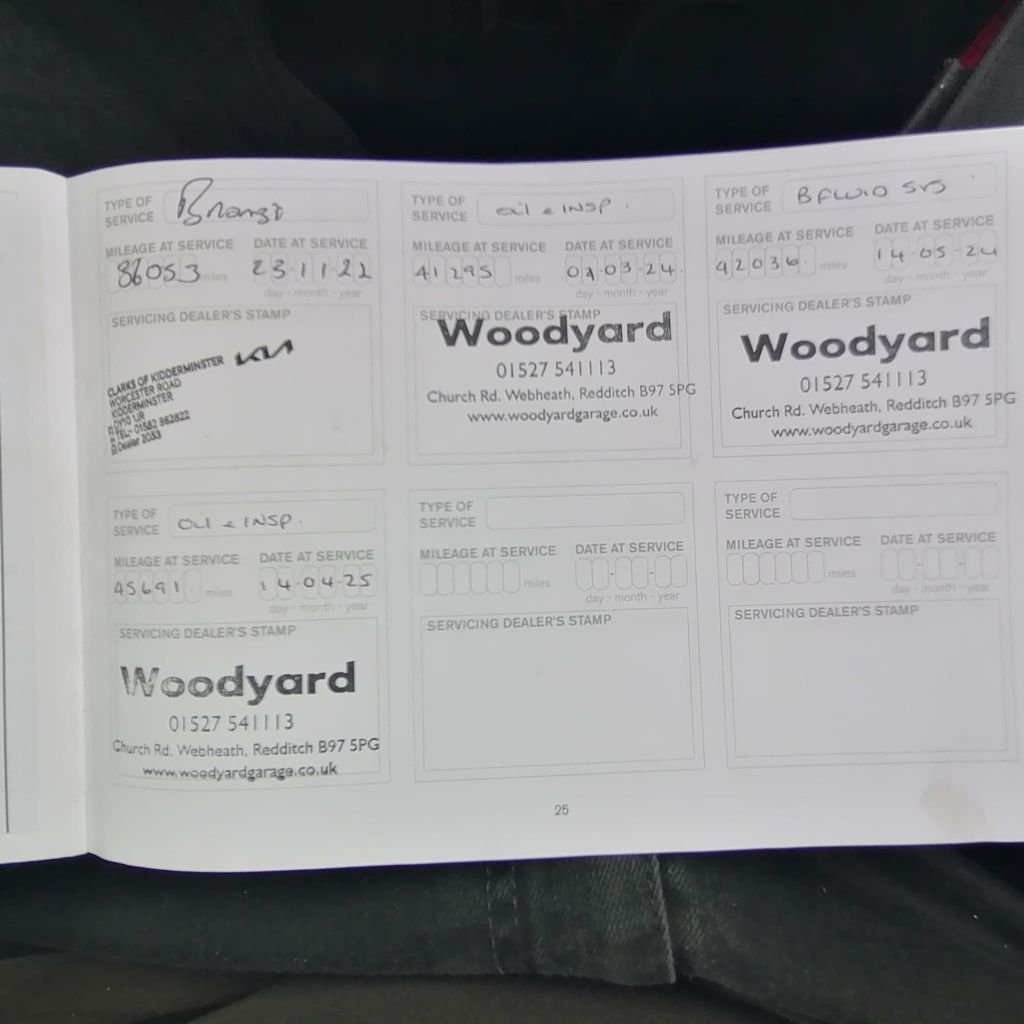 TYPE OF SERVICE Bronze
MILEAGE AT SERVICE DATE AT SERVICE
36053 miles 23-11-22
day - month - year
SERVICING DEALER'S STAMP
KIA
CLARKS OF KIDDERMINSTER
WORCESTER ROAD
KIDDERMINSTER
DY10 1JR
TEL- 01562 882822
Dealer 2053
TYPE OF SERVICE oil e INSP.
MILEAGE AT SERVICE DATE AT SERVICE
41295 miles 03-24
day - month - year
SERVICING DEALER'S STAMP
Woodyard
01527 541113
Church Rd. Webheath, Redditch B97 5PG
www.woodyardgarage.co.uk
TYPE OF SERVICE BFLUID SVS
MILEAGE AT SERVICE DATE AT SERVICE
42036 miles 14-05-24
day - month - year
SERVICING DEALER'S STAMP
Woodyard
01527 541113
Church Rd. Webheath, Redditch B97 5PG
www.woodyardgarage.co.uk
TYPE OF SERVICE oil e INSP.
MILEAGE AT SERVICE DATE AT SERVICE
45691 miles 14-04-25
day - month - year
SERVICING DEALER'S STAMP
Woodyard
01527 541113
Church Rd. Webheath, Redditch B97 5PG
www.woodyardgarage.co.uk
TYPE OF SERVICE
MILEAGE AT SERVICE DATE AT SERVICE
miles
day - month - year
SERVICING DEALER'S STAMP
TYPE OF SERVICE
MILEAGE AT SERVICE DATE AT SERVICE
miles
day - month - year
SERVICING DEALER'S STAMP
25